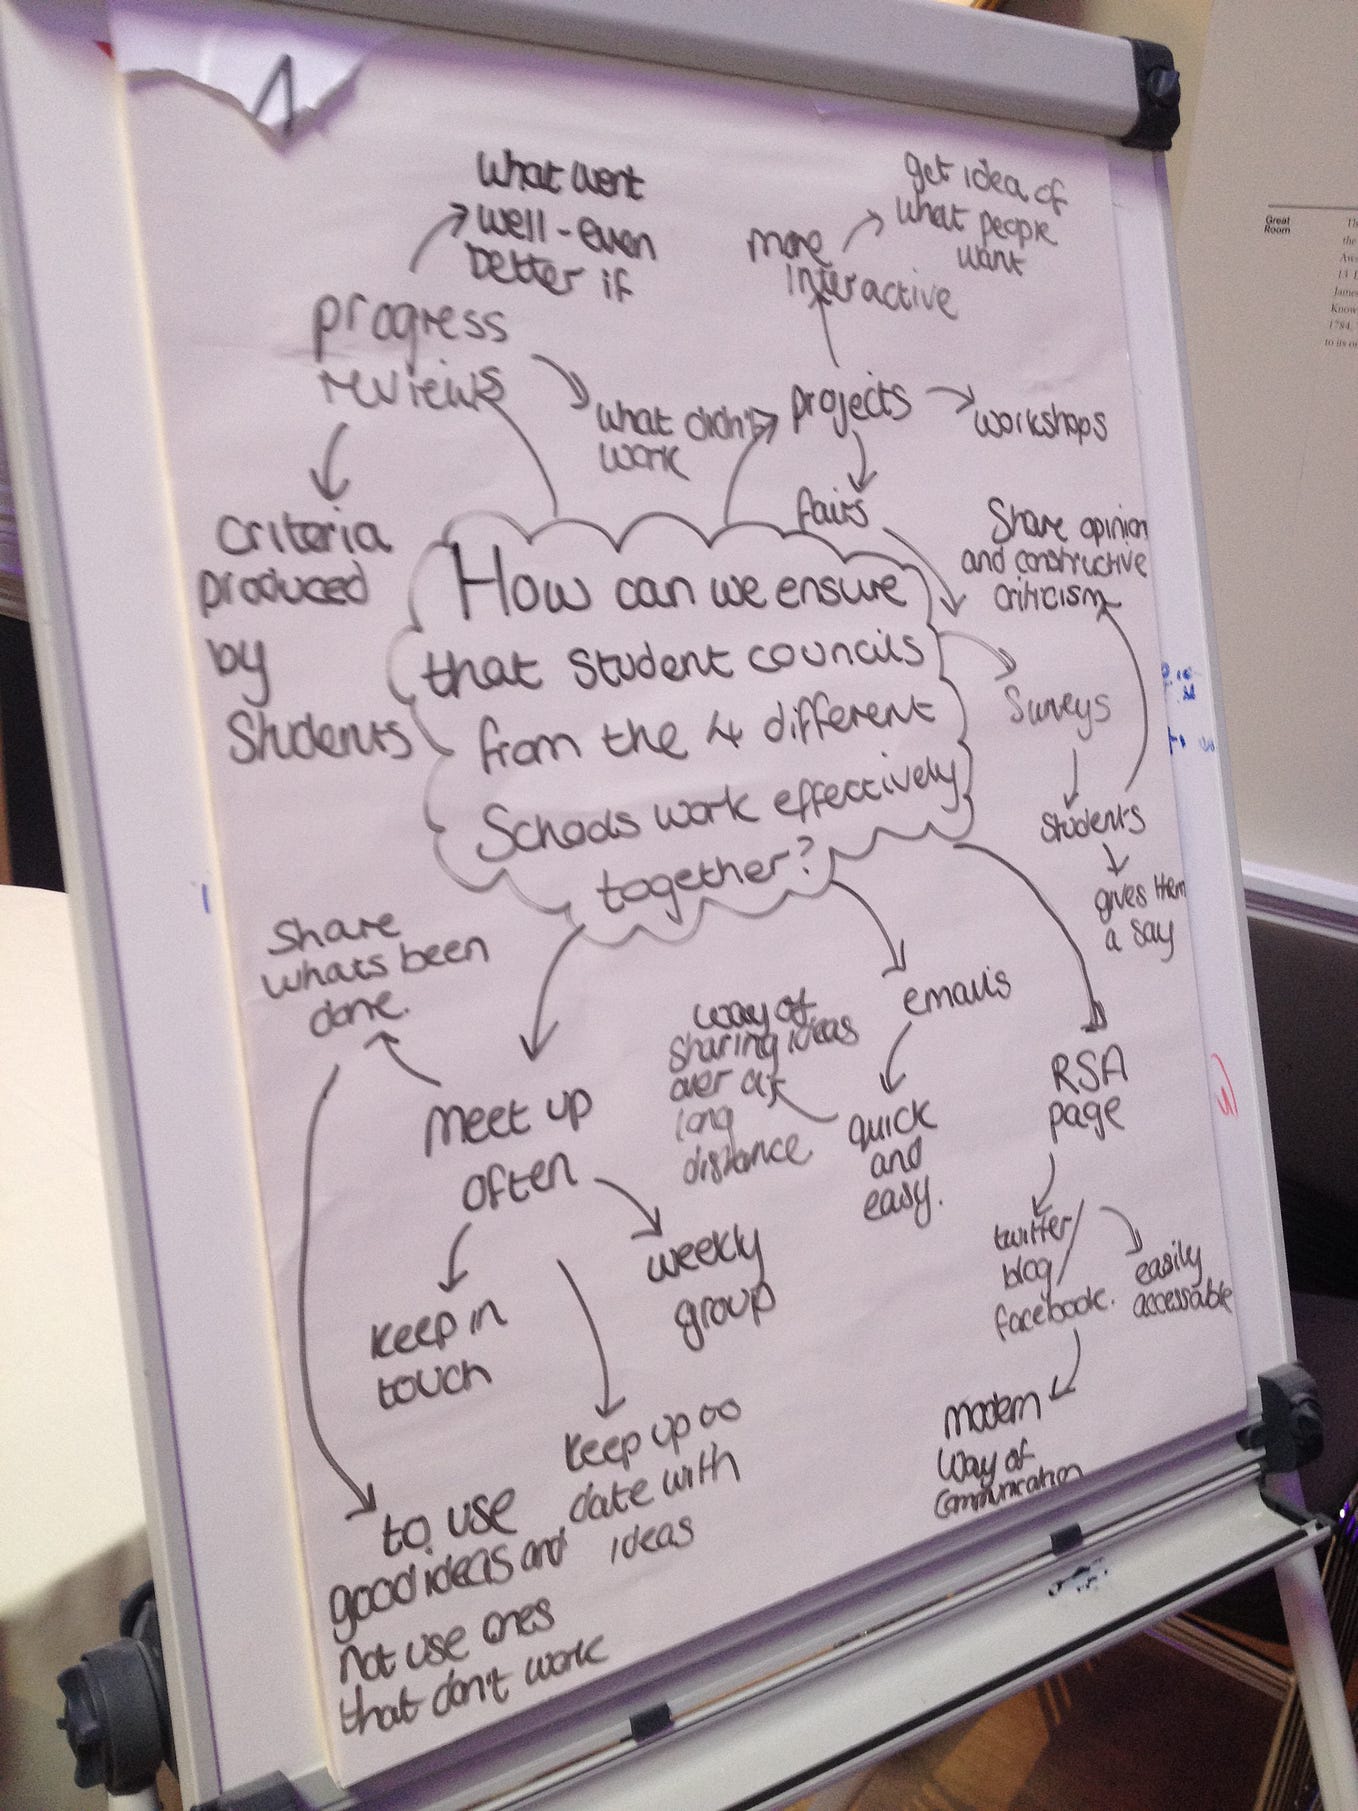 1
what went
well - even
better if
progress
reviews
what didn't
work
criteria
produced
by
Students
get idea of
what people
want
more
interactive
projects
workshops
fairs
Share opinion
and constructive
criticism
How can we ensure
that student councils
from the 4 different
Schools work effectively
together?
Surveys
Students
gives them
a say
Share
whats been
done.
meet up
often
weekly
group
keep in
touch
keep up to
date with
ideas
to use
good ideas and
not use ones
that don't work
emails
quick
and
easy.
way of
sharing ideas
over a
long
distance
RSA
page
twitter/
blog/
facebook.
easily
accessable
modern
way of
communication
Great
Room